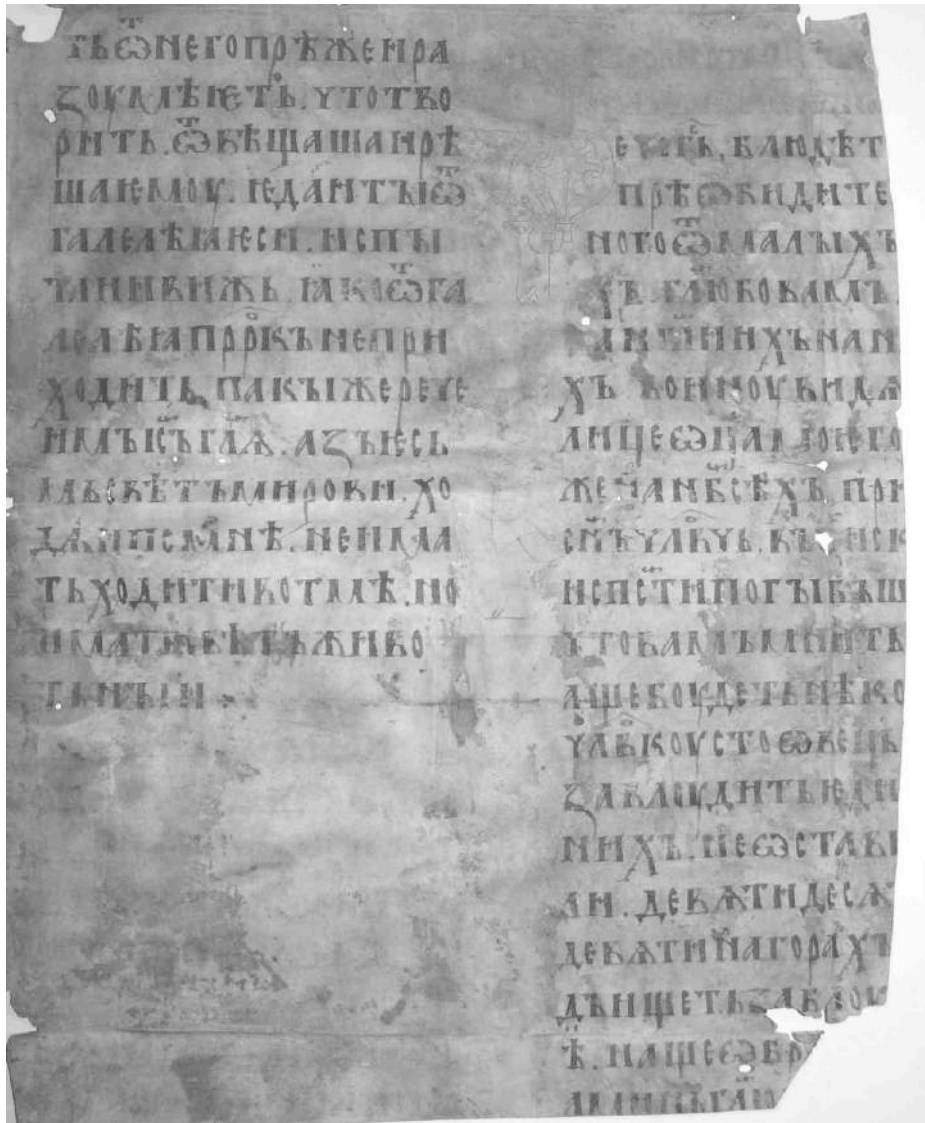 тьѿнегопрѣжеира
зоумѣѥть. чтотво
рить. ѿвѣщашаирѣ
шаѥмоу. ѥдаитыѿ
галелѣꙗѥси. испы
таиивижь. ꙗкоѿга
лелѣꙗпрⷪ҇ркъ непри
ходить. пакыжерече
имъіс҃ъгл҃ѧ. азъѥсь
мьсвѣтъмирови. хо
дѧипомнѣ. неима
тьходитивотьмѣ. но
иматьсвѣтъживо
тьныи
еуⷢ҇гь, блюдѣт
прѣѡбидите
ногоѿмалыхъ
хъ гл҃юбовамъ.
ан҃глиихънан
хъ воиноувидѧ
лицеѡц҃амоѥго
женан҃бсѣхъ. при
сн҃ъчл҃вчь. въ иск
исп҃стипогыбъш
чтовамъмнить
ащебоудетьнѣко
чл҃вкоустоѡвець
заблоудитьѥди
нихъ. неѡстави
ли. девѧтидесѧ
девѧтинагорахъ
дъищетьзаблоу
ѣ. иащеѡбр
аминьгл҃ю